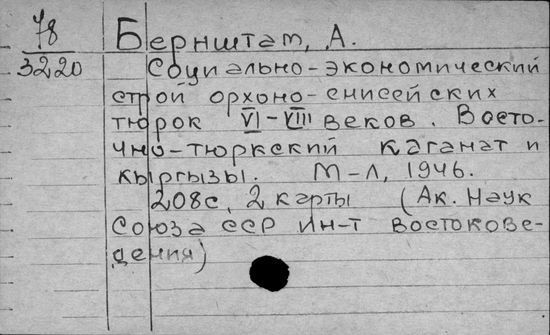 78
3220
Бернштам, А.
Социально-экономический
строй орхоно-енисейских
тюрок VI-VIII веков. Восто-
чно-тюркский каганат и
кыргызы. М-Л, 1946.
208с, 2 карты (Ак. Наук
Союза ССР Ин-т востокове-
дения)